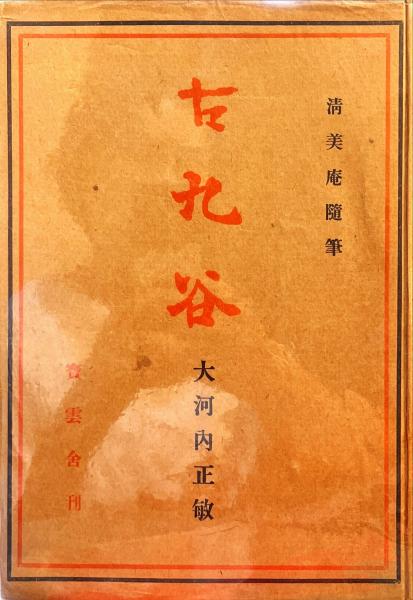 淸美庵隨筆
古九谷
大河內正敏
寶雲舍刊